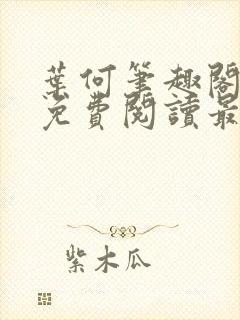 葉何筆趣閣
免費閱讀最
紫木瓜